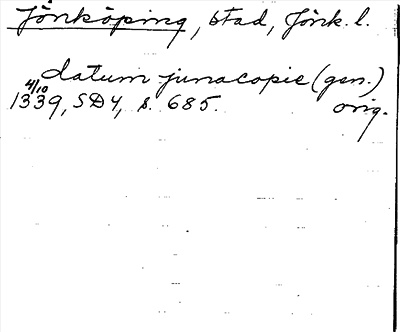 Jönköping, stad, Jönk. l.
datum junacopie (gen.)
4/10
1339, SD4, s. 685. orig.